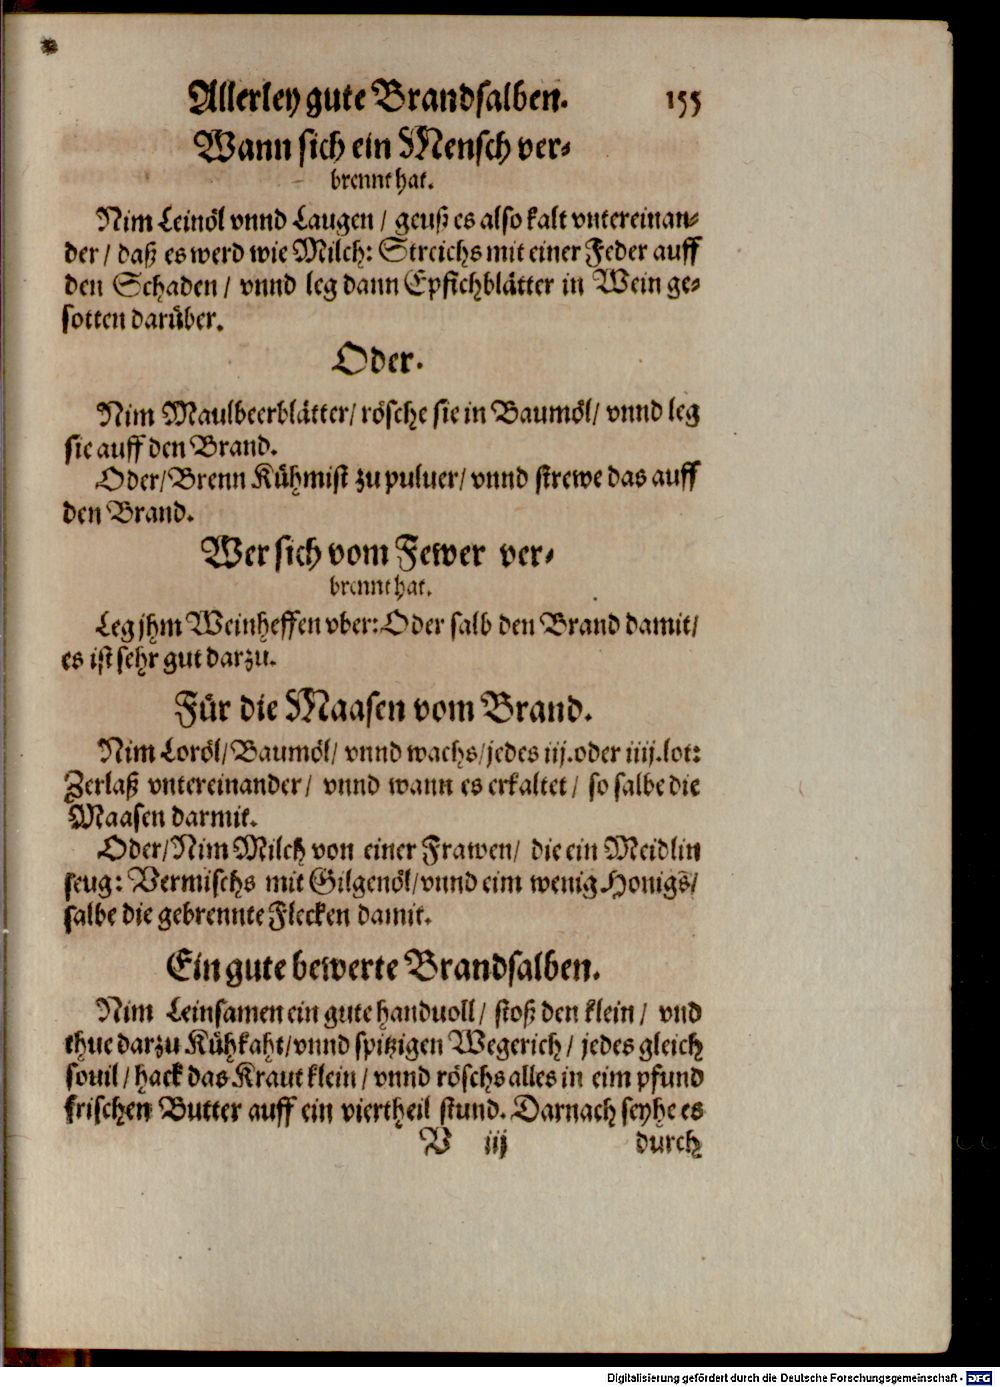 Allerley gute Brandsalben. 155
Wann sich ein Mensch ver-
brennt hat.
Nim Leinöl vnnd Laugen / geuß es also kalt vntereinan-
der / daß es werd wie Milch: Streichs mit einer Feder auff
den Schaden / vnnd leg dann Epfichblätter in Wein ge-
sotten darüber.
Oder.
Nim Maulbeerblätter / rösche sie in Baumöl / vnnd leg
sie auff den Brand.
Oder / Brenn Kühmist zu puluer / vnnd strewe das auff
den Brand.
Wer sich vom Fewer ver-
brennt hat.
Leg jhm Weinheffen vber: Oder salb den Brand damit /
es ist sehr gut darzu.
Für die Maasen vom Brand.
Nim Loröl / Baumöl / vnnd wachs / jedes iij. oder iiij. lot:
Zerlaß vntereinander / vnnd wann es erkaltet / so salbe die
Maasen darmit.
Oder / Nim Milch von einer Frawen / die ein Meidlin
seug: Vermischs mit Gilgenöl / vnnd eim wenig Honigs /
salbe die gebrennte Flecken damit.
Ein gute bewerte Brandsalben.
Nim Leinsamen ein gute handuoll / stoß den klein / vnd
thue darzu Kühkaht / vnnd spitzigen Wegerich / jedes gleich
souil / hack das Kraut klein / vnnd röschs alles in eim pfund
frischen Butter auff ein viertheil stund. Darnach seyhe es
V iij durch
Digitalisierung gefördert durch die Deutsche Forschungsgemeinschaft - DFG